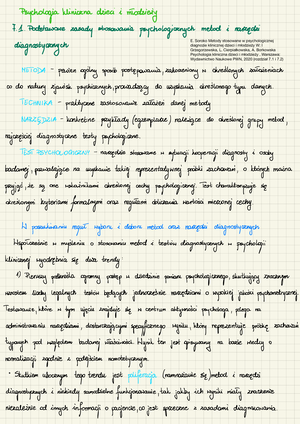 Psychologia kliniczna dzieci i młodzieży
7.1. Podstawowe zasady stosowania psychologicznych metod i narzędzi
diagnostycznych
E. Soroko Metody stosowane w psychologicznej
diagnozie klinicznej dzieci i młodzieży W: I.
Grzegorzewska, L. Cierpiałkowska, A. Borkowska
Psychologia kliniczna dzieci i młodzieży , Warszawa:
Wydawnictwo Naukowe PWN, 2020 (rozdział 7.1 i 7.2)
METODA - pewien ogólny sposób postępowania, zakorzeniony w określonych założeniach
co do natury zjawisk psychicznych, prowadzący do uzyskania określonego typu danych.
TECHNIKA - praktyczne zastosowanie założeń danej metody
NARZĘDZIA - konkretne przykłady (egzemplarze) należące do określonej grupy metod,
najczęściej diagnostyczne testy psychologiczne.
TEST PSYCHOLOGICZNY - narzędzie stosowane w sytuacji kooperacji diagnosty i osoby
badanej, pozwalające na uzyskanie takiej reprezentatywnej próbki zachowań, o których można
przyjąć, że są one wskaźnikami określonej cechy psychologicznej. Test charakteryzuje się
określonymi kryteriami formalnymi oraz regułami obliczania wartości mierzonej cechy.
W poszukiwaniu reguł wyboru i doboru metod oraz narzędzi diagnostycznych
Współcześnie w myśleniu o stosowaniu metod i testów diagnostycznych w psychologii
klinicznej wyodrębnia się dwa trendy:
1) Pierwszy podkreśla ogromny postęp w dziedzinie pomiaru psychologicznego, skutkujący znacznym
wzrostem liczby legalnych testów będących jednocześnie narzędziami o wysokiej jakości psychometrycznej.
Testowanie, które w tym ujęciu znajduje się w centrum aktywności psychologa, polega na
administrowaniu narzędziami, dostarczającymi specyficznego wyniku, który reprezentuje próbkę zachowań
typowych pod względem badanej właściwości. Wynik ten jest opisywany na bazie wiedzy o
normalizacji zgodnie z podejściem nomotetycznym.
• Skutkiem ubocznym tego trendu jest proliferacja (namnażanie się) metod i narzędzi
diagnostycznych i niekiedy samodzielne funkcjonowanie, tak jakby ich wyniki miały znaczenie
niezależnie od innych informacji o pacjencie, co jest sprzeczne z zasadami diagnozowania.